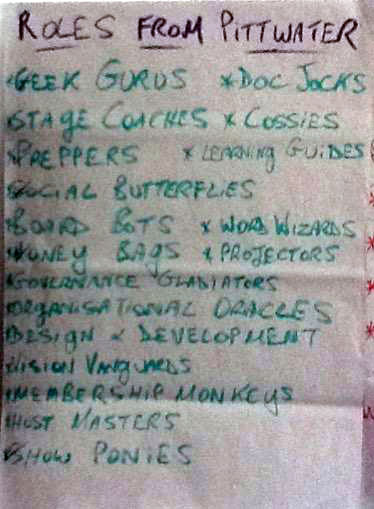 ROLES FROM PITTWATER
*GEEK GURUS *DOC JOCKS
*STAGE COACHES *COSSIES
*PREPPERS *LEARNING GUIDES
*SOCIAL BUTTERFLIES
*BOARD BOTS *WORD WIZARDS
*MONEY BAGS *PROJECTORS
*GOVERNANCE GLADIATORS
*ORGANISATIONAL ORACLES
*DESIGN & DEVELOPMENT
*VISION VANGUARDS
*MEMBERSHIP MONKEYS
*HOST MASTERS
*SHOW PONIES